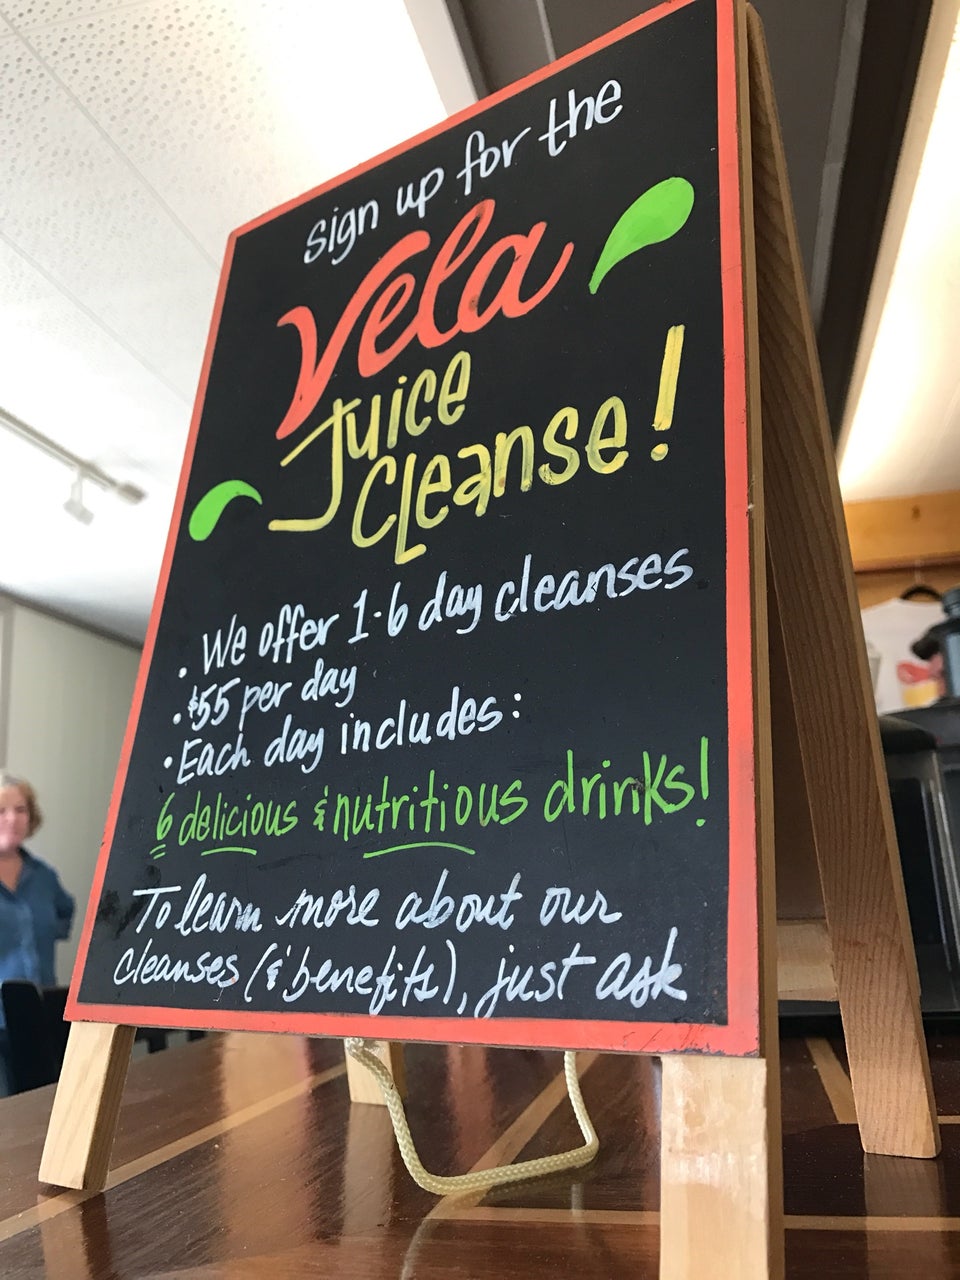 Sign up for the
Vela
Juice
Cleanse!
• We offer 1-6 day cleanses
• $55 per day
• Each day includes:
6 delicious & nutritious drinks!
To learn more about our
cleanses (& benefits), just ask